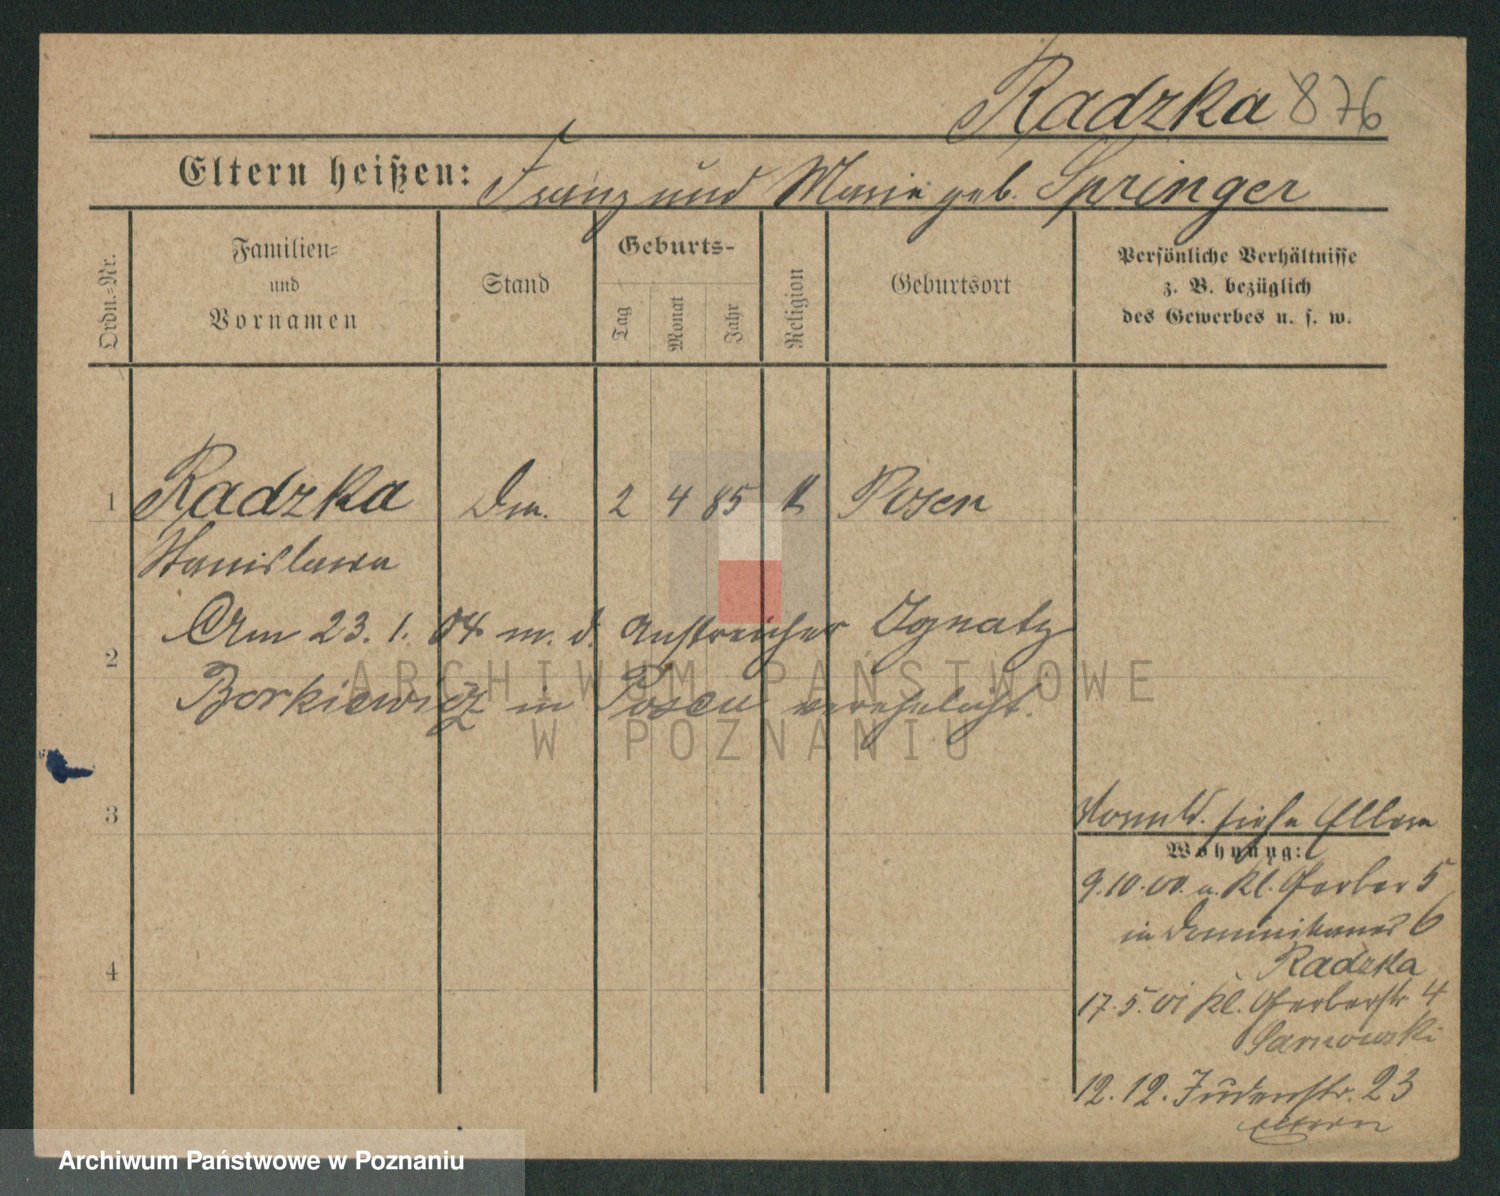 Radzka 876
Eltern heißen: Franz und Marie geb. Springer
Ordn.-Nr.
Familien-
und
Vornamen
Stand
Geburts-
Tag
Monat
Jahr
Religion
Geburtsort
Persönliche Verhältnisse
z. B. bezüglich
des Gewerbes u. s. w.
1 Radzka 2 4 85 k Posen
Stanislawa
Am 23. 1. 04 m. d. Anstreicher Ignatz
2
Borkiewicz in Posen verehelicht.
ARCHIWUM PAŃSTWOWE
W POZNANIU
3
siehe Eltern
Wohnung:
9.10.00. a. Kl. Gerber 5
in Dominikaner 6
Radzka
4
17.5.01 Kl. Gerberstr. 4
Sarnowski
12.12. Judenstr. 23
Eltern
Archiwum Państwowe w Poznaniu